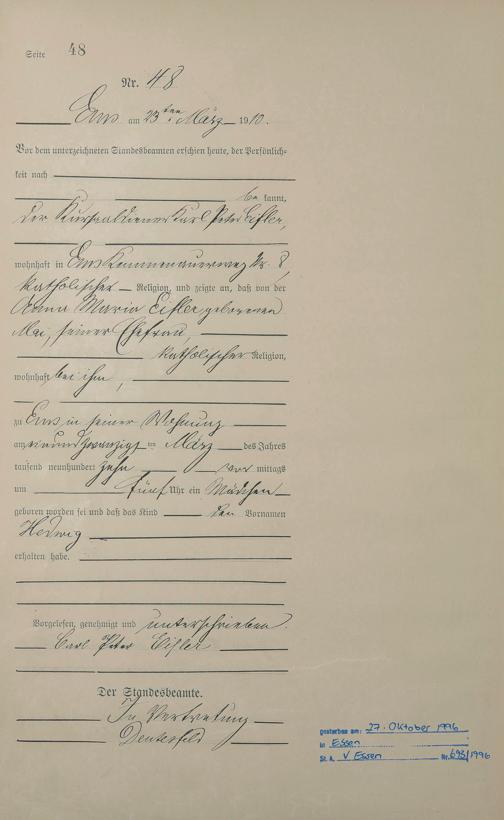 Seite 48
Nr. 48
Ems am 23ten März 1910.
Vor dem unterzeichneten Standesbeamten erschien heute, der Persönlich-
keit nach
be kannt,
der Kursaaldiener Karl Peter Eifler,
wohnhaft in Ems Nr. 8,
katholischer Religion, und zeigte an, daß von der
Anna Maria Eifler geborenen
Mai, seiner Ehefrau,
katholischer Religion,
wohnhaft bei ihm,
zu Ems in seiner Wohnung
am einundzwanzigsten März des Jahres
tausend neunhundert zehn vor mittags
um fünf Uhr ein Mädchen
geboren worden sei und daß das Kind den Vornamen
Hedwig
erhalten habe.
Vorgelesen, genehmigt und unterschrieben.
Carl Peter Eifler
Der Standesbeamte.
In Vertretung
gestorben am: 27. Oktober 1996
in Essen
St. A. V Essen Nr. 693/1996